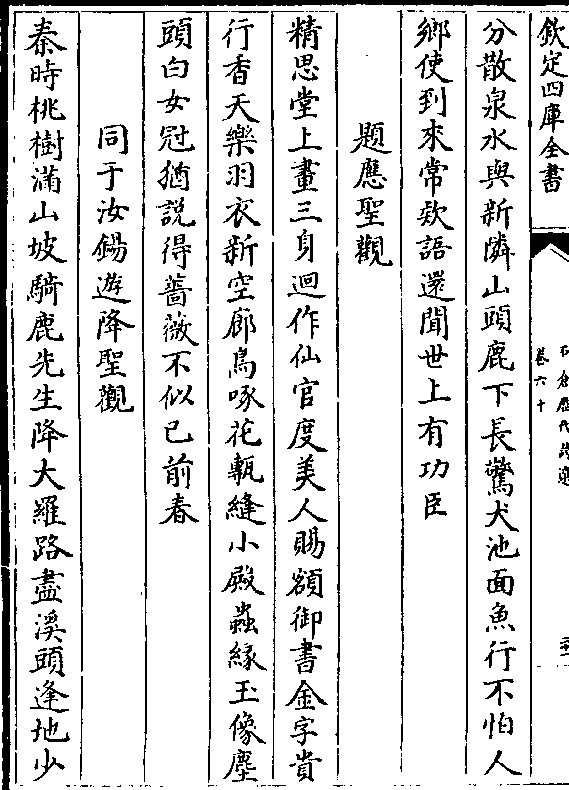 欽定四庫全書
石倉歷代詩選
卷六十
分散泉水與新隣山頭鹿下長驚犬池面魚行不怕人
鄉使到來常欵語還聞世上有功臣
題應聖觀
精思堂上畫三身迴作仙官度美人賜額御書金字貴
行香天樂羽衣新空廊鳥啄花甎縫小殿蟲緣玉像塵
頭白女冠猶説得薔薇不似已前春
同于汝錫遊降聖觀
秦時桃樹滿山坡騎鹿先生降大羅路盡溪頭逢地少